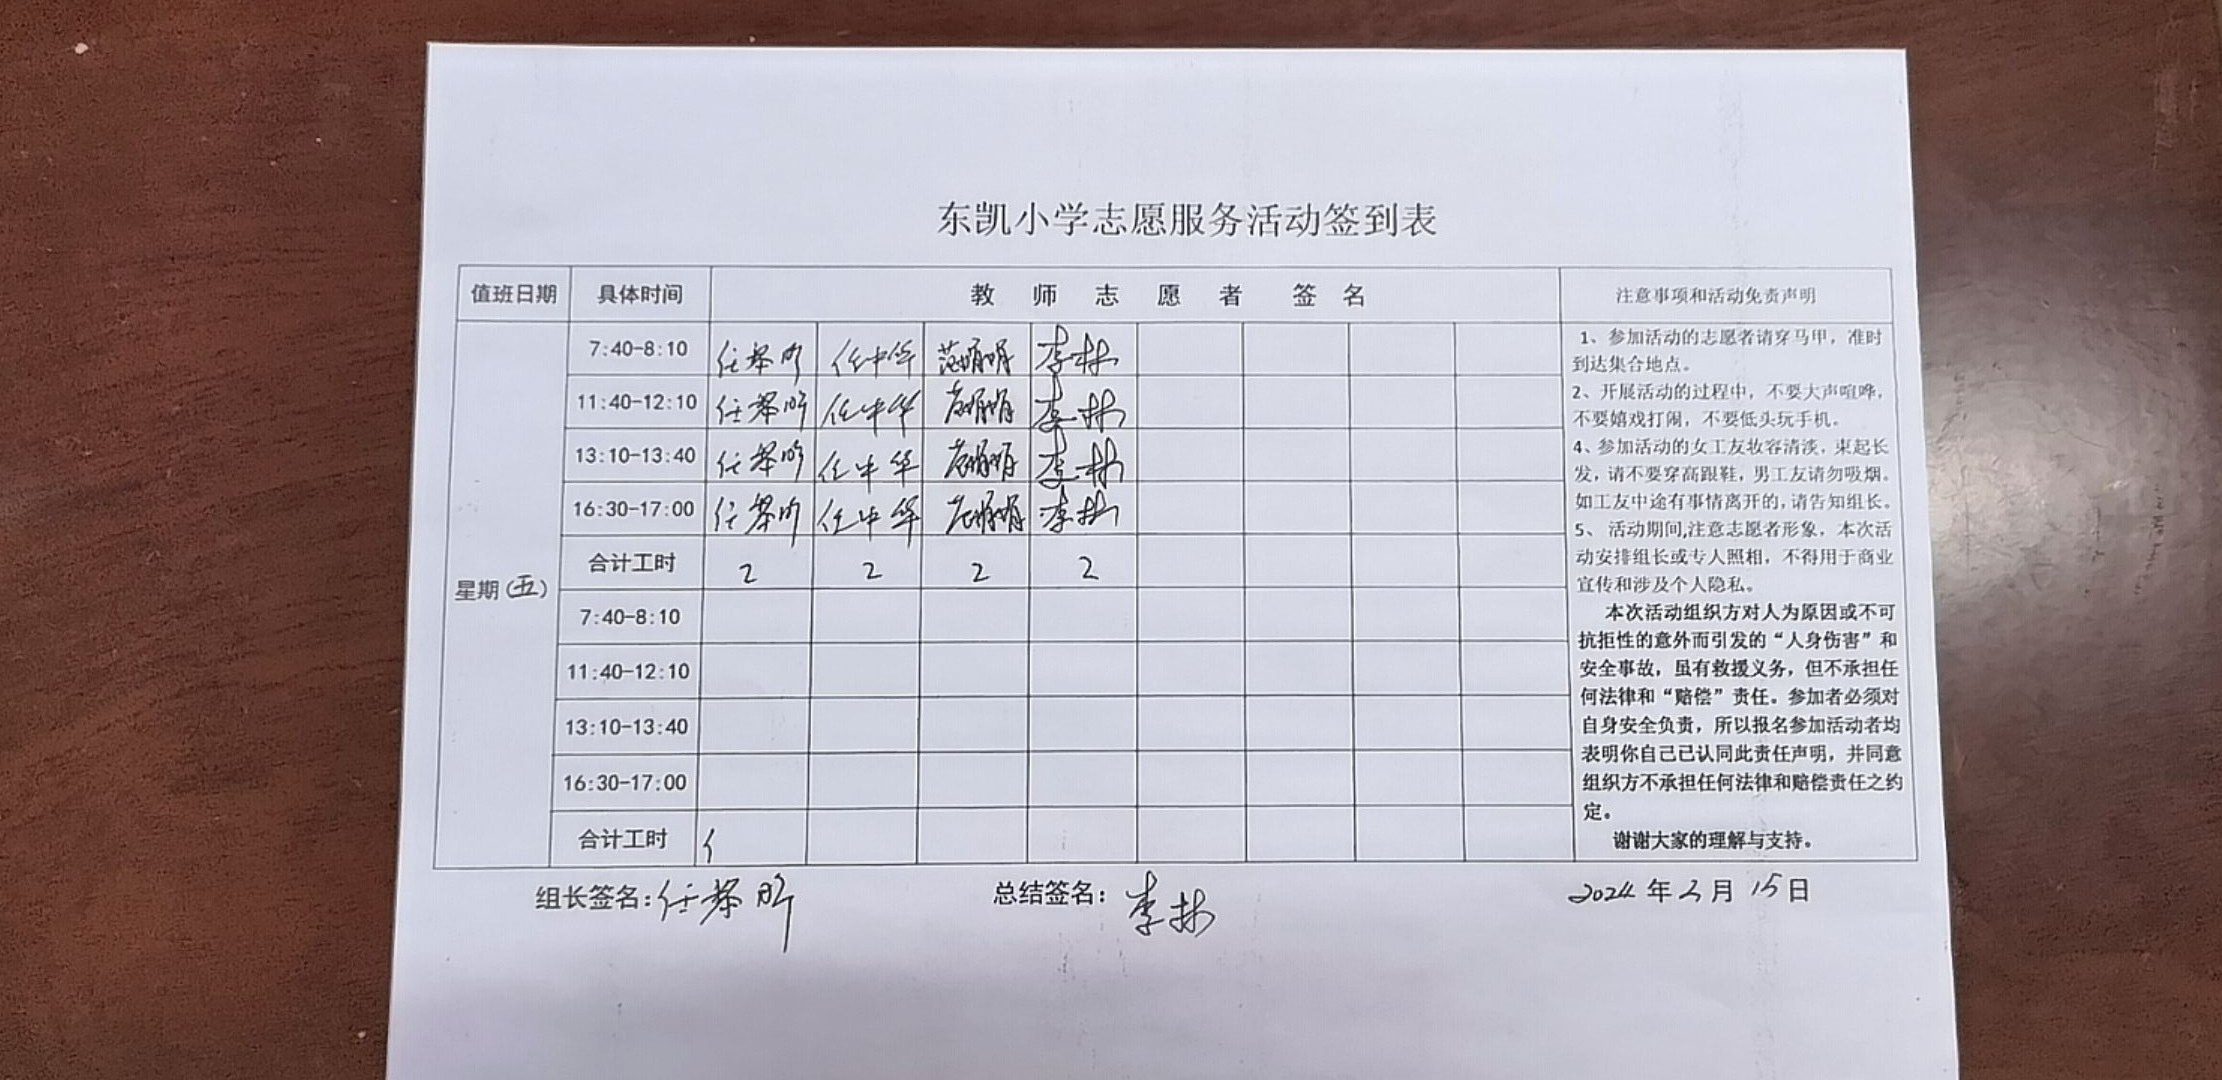 东凯小学志愿服务活动签到表
值班日期 具体时间 教师志愿者 签名 注意事项和活动免责声明
星期(五)
7:40-8:10 任黎明 任中华 范娟娟 李林
11:40-12:10 任黎明 任中华 范娟娟 李林
13:10-13:40 任黎明 任中华 范娟娟 李林
16:30-17:00 任黎明 任中华 范娟娟 李林
合计工时 2 2 2 2
7:40-8:10
11:40-12:10
13:10-13:40
16:30-17:00
合计工时
1、参加活动的志愿者请穿马甲，准时
到达集合地点。
2、开展活动的过程中，不要大声喧哗，
不要嬉戏打闹，不要低头玩手机。
4、参加活动的女工友妆容清淡，束起长
发，请不要穿高跟鞋，男工友请勿吸烟。
如工友中途有事情离开的，请告知组长。
5、 活动期间,注意志愿者形象，本次活
动安排组长或专人照相，不得用于商业
宣传和涉及个人隐私。
本次活动组织方对人为原因或不可
抗拒性的意外而引发的“人身伤害”和
安全事故，虽有救援义务，但不承担任
何法律和“赔偿”责任。参加者必须对
自身安全负责，所以报名参加活动者均
表明你自己已认同此责任声明，并同意
组织方不承担任何法律和赔偿责任之约
定。
谢谢大家的理解与支持。
组长签名：任黎明 总结签名：李林 2024年3月15日